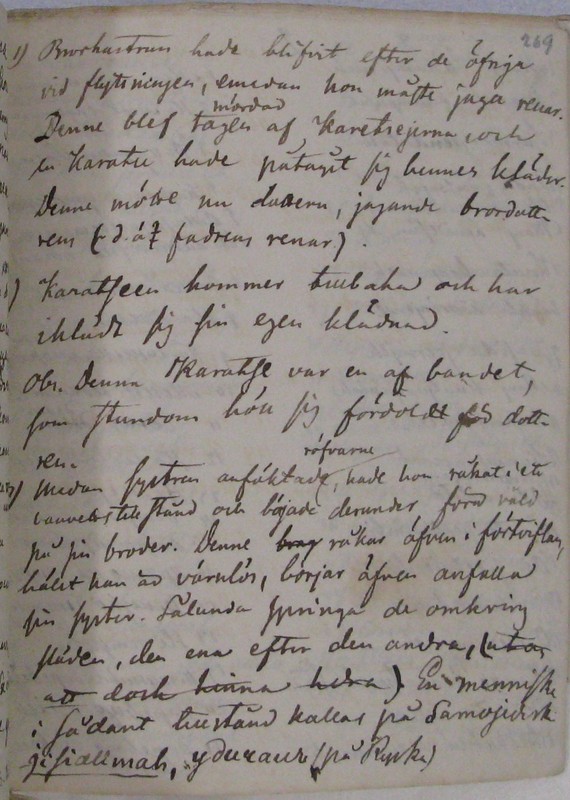 269
1) Brorhustrun hade blifvit efter de öfriga
vid flyttningen, emedan hon måste jaga renar.
mördad
Denne blef tagen af Karatsejerna, och
en Karatse hade påtagit sig hennes kläder.
Denne mötte nu dottern, jagande brordott-
rens (d. ä. fadrens renar).
) Karatseen kommer tillbaka och har
iklädt sig sin egen klädnad.
Obs. Denna Karatse var en af bandet,
som stundom höll sig fördoldt för dott-
ren.
röfvarne
) Medan systren anföktade, hade hon råkat i ett
tillstånd och böjade derunder föra våld
på sin broder. Denne råkar äfven i förtviflan,
hölst han är värnlös, börjar äfven anfalla
sin syster. Sålunda springa de omkring
staden, den ena efter den andra, (utan
att dock hinna hvdra). En menniska
i sådant tillstånd kallas på Samojedisk
(på Ryska)